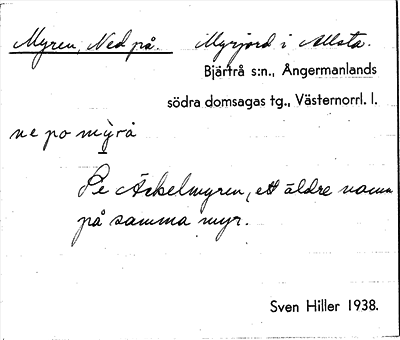 Myren, Ned på. Myrjord i Allsta.
Bjärtrå s:n., Ångermanlands
södra domsagas tg., Västernorrl. l.
ne po mỳrå
Se Äckelmyren, ett äldre namn
på samma myr.
Sven Hiller 1938.